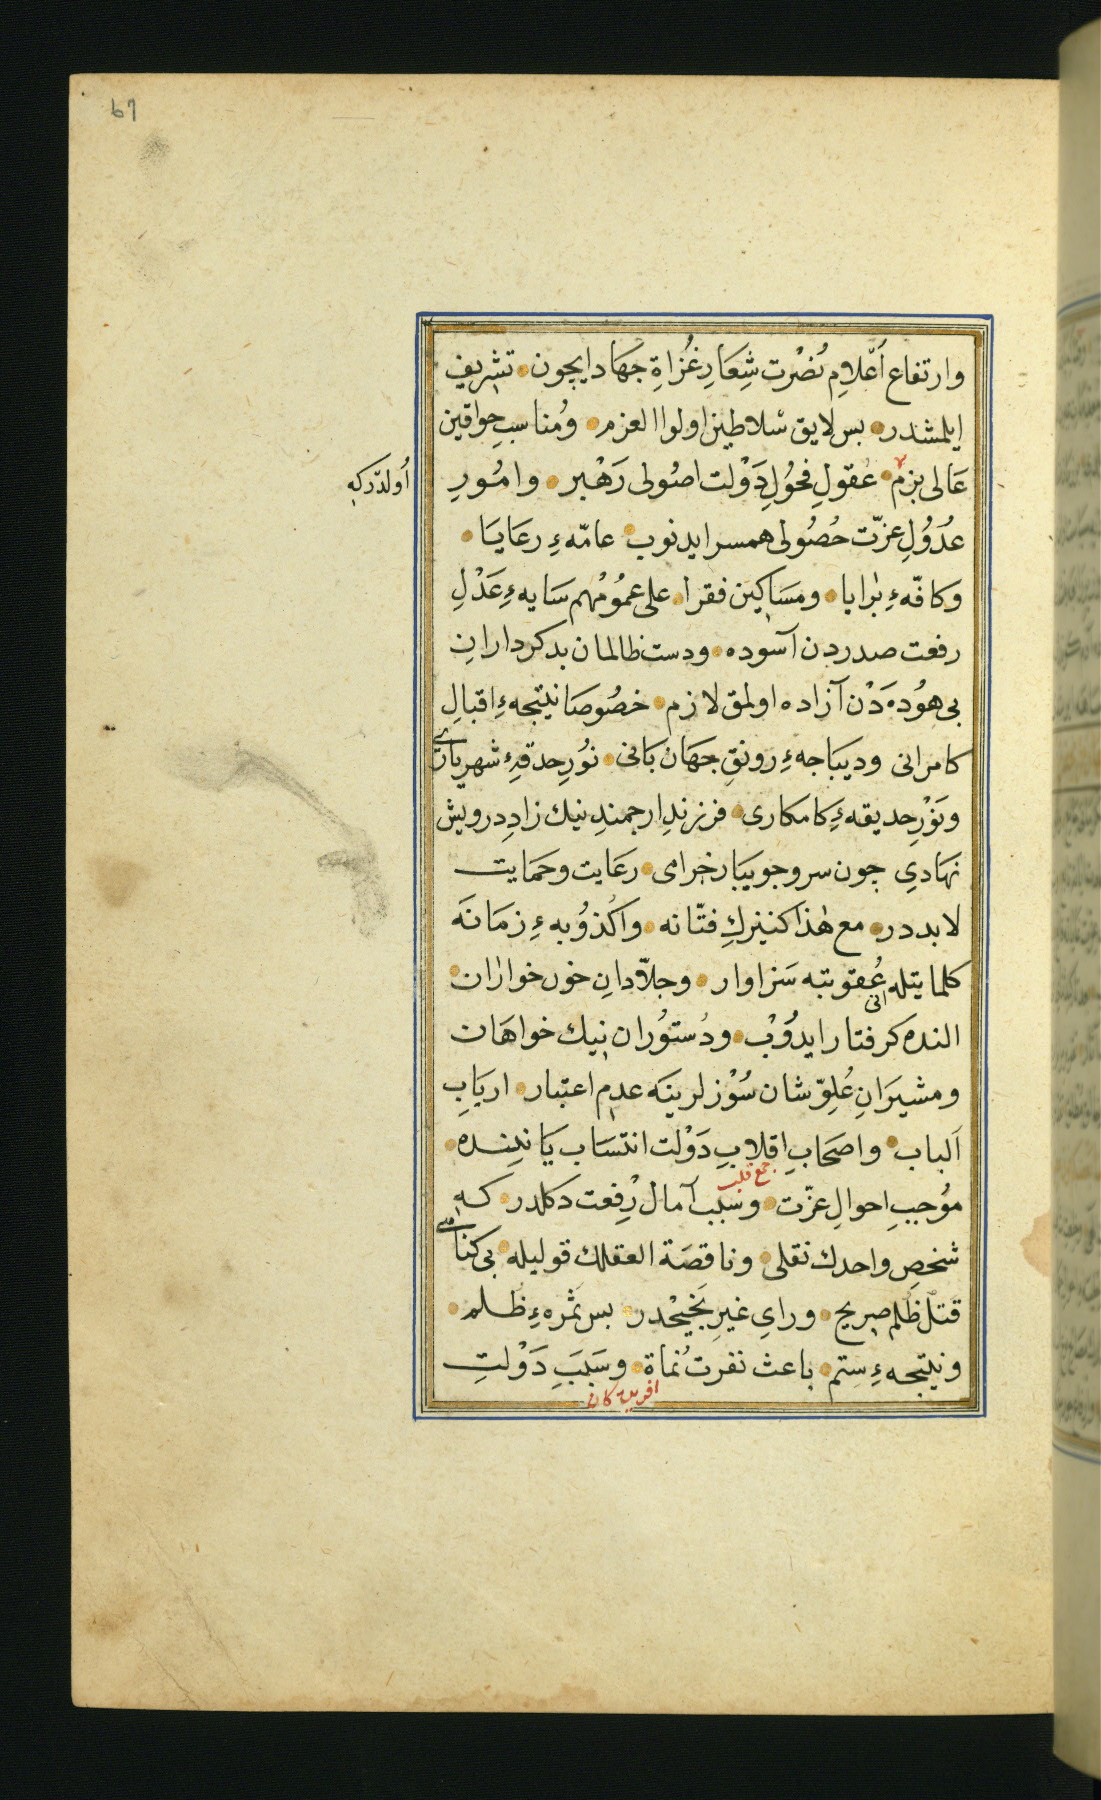 67
وارتفاع اَعْلامِ نُصْرت شِعَارِ غُزاةِ جهاد ايچون تشريف
ايلمشدر بس لايق سلاطين اولوا العزم ومُناسبِ خواقين
عَالى بزم عُقولِ فحُولِ دَوْلت اصُولى رَهْبر وامُورِ
اُولدركه
عُدُولِ عزّت حُصُولى همسر ايدنوب عامّهءِ رعَايَا
وَكافّهءِ بَرايا ومسَاكين فقرا على عمُومُهم سَايهءِ عَدْلِ
رفعت صدردن آسوده ودست ظالمان بدكردارانِ
بى هوُدهَ دَنْ آزاده اولمق لازم خصُوصَا نتيجهءِ اقبالِ
كامرانى وديبَاجهءِ رونقِ جهَان بَانى نوُرِ حدقهءِ شهريارى
ونَوْرِ حديقهءِ كامكارى فرزندِ ارجمندِ نيك زادِ درويش
نهَادىِ چون سرو جويبَار خرامى رعَايت وحمَايت
لا بددر مع هٰذا كنيزكِ فتّانه واكُذوُبهءِ زمَانَه
كلماتيله انى عُقوبته سَزاوار وجلاّدانِ خون خواران
النده كرفتار ايدُوْب ودُستوُران نيك خواهَان
ومشيرَانِ عُلِوّ شان سُوْزلرينَه عدم اعتبار اربَابِ
اَلباب واصحَابِ اقلابِ دَوْلت انتسَاب يَاننده
جمع قلب
موُجبِ احوالِ عزّت وسَبب آمال رِفعت دكلدر كه
شخصِ واحدك نقلى وناقصَة العقلك قوليله بى كناهى
قتل ظُلم صريح وراىِ غيرِ نجيحْدر بس ثمرهءِ ظُلم
ونيتجهءِ سِتم باعث نفرت نُماة وسَببَِ دَوْلتِ